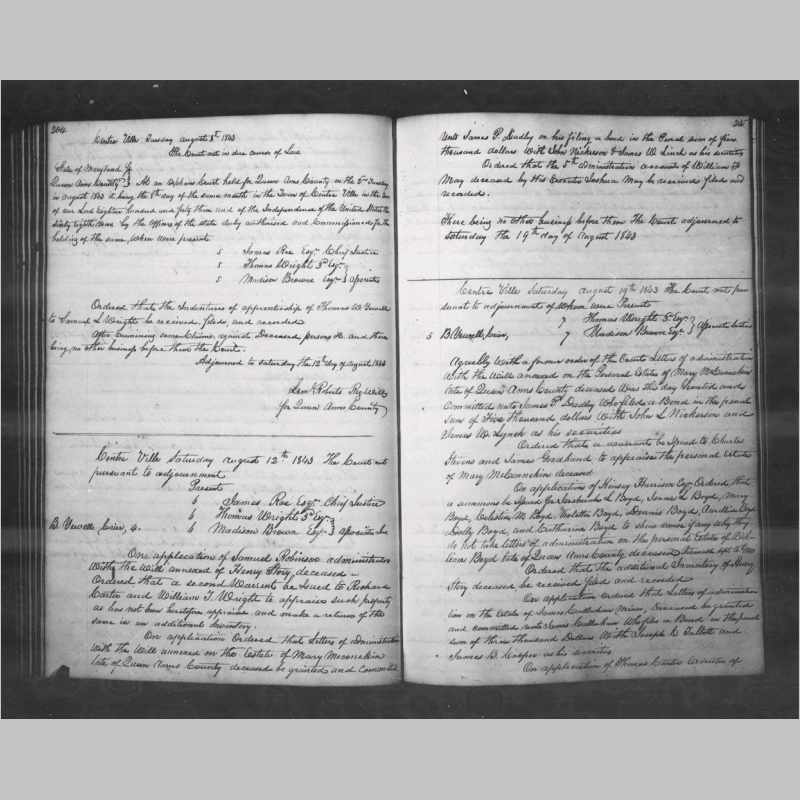 204
Centre Ville Tuesday August 8th 1843
The Court met in due course of Law
State of Maryland
Queen Anns County } At an Orphans Court held for Queen Anns County on the 2nd Tuesday
in August 1843 it being the 8th day of the same month in the Town of Centre Ville in the Year
of our Lord Eighteen hundred and forty three and of the Independence of the United States the
Sixty eighth Were by the Officers of the state duly authorised and Commissioned for the
holding of the same, When were present
5 James Roe Esqr. Chief Justice
5 Thomas Wright 3d Esqr.
5 Madison Browne Esqr. } Associates
Ordered that the Indentures of apprenticeship of Thomas W.
to Samuel L Wright be received, filed, and recorded
After Examining some Claims against Deceased persons &c. and there
being no other business before them the Court.
Adjourned to saturday the 12th day of August 1843
Saml. Roberts Reg Wills
for Queen Anns County
Centre Ville Saturday August 12th 1843 The Court met
pursuant to adjournment
Present
6 James Roe Esqr. Chief Justice
6 Thomas Wright 3d Esqr.
B. Crier, 4. 6 Madison Browne Esqr. } Associates
One application of Samuel Robinson administrator
With the Will annexed of Henry Story deceased—
Ordered that a second Warrent be Issued to Richard
Carter and William T. Wright to appraise such property
as has not been heretofore appraised and make a return of the
same in an additional Inventory.
On application Ordered that Letters of administration
With the Will annexed on the Estate of Mary Meconekin
late of Queen Anns County deceased be granted and Committed
unto James P. Dudley on his filing a bond in the Penal sum of five
thousand dollars With John Nickerson & James W. Linch as his securities
Ordered that the 5th administration account of William
May deceased by His Executor Joshua May be received filed and
recorded.
There being no other business before them the Court adjourned to
saturday the 19th day of August 1843
Centre Ville Saturday August 19th 1843 The Court met pur
suant to adjournment When were Presents
7 Thomas Wright 3d Esqr.
5 B. Crier, 7 Madison Brown Esqr. } Associate
Agreeably With a former order of the Courts Letters of administration
With the Will annexed on the Personal Estate of Mary McConnekin
late of Queen Anns County deceased Was this day Granted and
Committed unto James P. Dudley Who filed a Bond in the penal
sum of Five thousand dollars With John L Nickerson and
James W. Lynch as his securities
Ordered that a warrant be Issued to Charles
Stevens and James to appraise the personal estate
of Mary McConnekin deceased
On application of Hinsey Harrison Esqr Ordered that
a summons be Issued for L. Boyd, James L Boyd, Mary
Boyd, Celestia M. Boyd, Violetta Boyd, Dennis Boyd,
Dolly Boyd, and Catharine Boyd to shew cause if any why they
do not take letters of administration on the personal Estate of
Boyd late of Queen Anns County deceased
Ordered that the additional Inventory of Henry
Story deceased be received filed and recorded
On application ordered that Letters of administra
tion on the Estate of James Deceased be granted
and committed unto James Who files a Bond in the penal
sum of three thousand Dollars With Joseph C. Talbott and
James B. Cooper as his sureties
On application of Thomas Carter Executor of